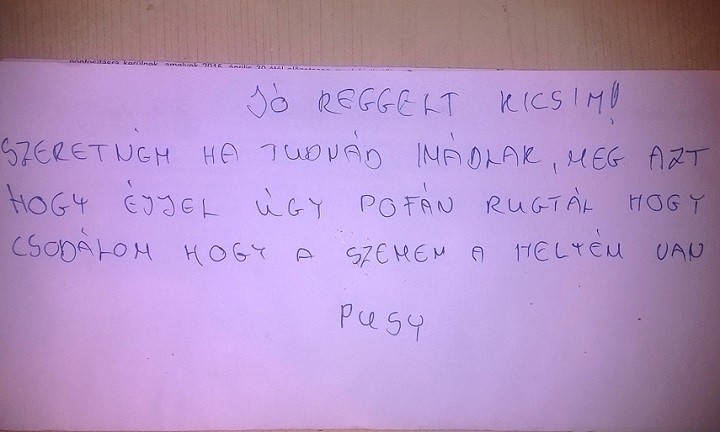 JÓ REGGELT KICSIM!
SZERETNÉM HA TUDNÁD IMÁDLAK, MEG AZT
HOGY ÉJJEL ÚGY POFÁN RUGTÁL HOGY
CSODÁLOM HOGY A SZEMEM A HELYÉN VAN
PUSY